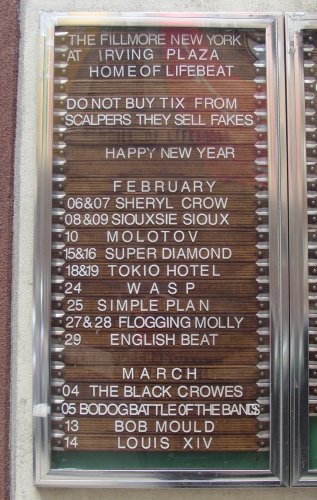 THE FILLMORE NEW YORK
AT IRVING PLAZA
HOME OF LIFEBEAT
DO NOT BUY TIX FROM
SCALPERS THEY SELL FAKES
HAPPY NEW YEAR
FEBRUARY
06&07 SHERYL CROW
08&09 SIOUXSIE SIOUX
10 MOLOTOV
15&16 SUPER DIAMOND
18&19 TOKIO HOTEL
24 WASP
25 SIMPLE PLAN
27&28 FLOGGING MOLLY
29 ENGLISH BEAT
MARCH
04 THE BLACK CROWES
05 BODOG BATTLE OF THE BANDS
13 BOB MOULD
14 LOUIS XIV